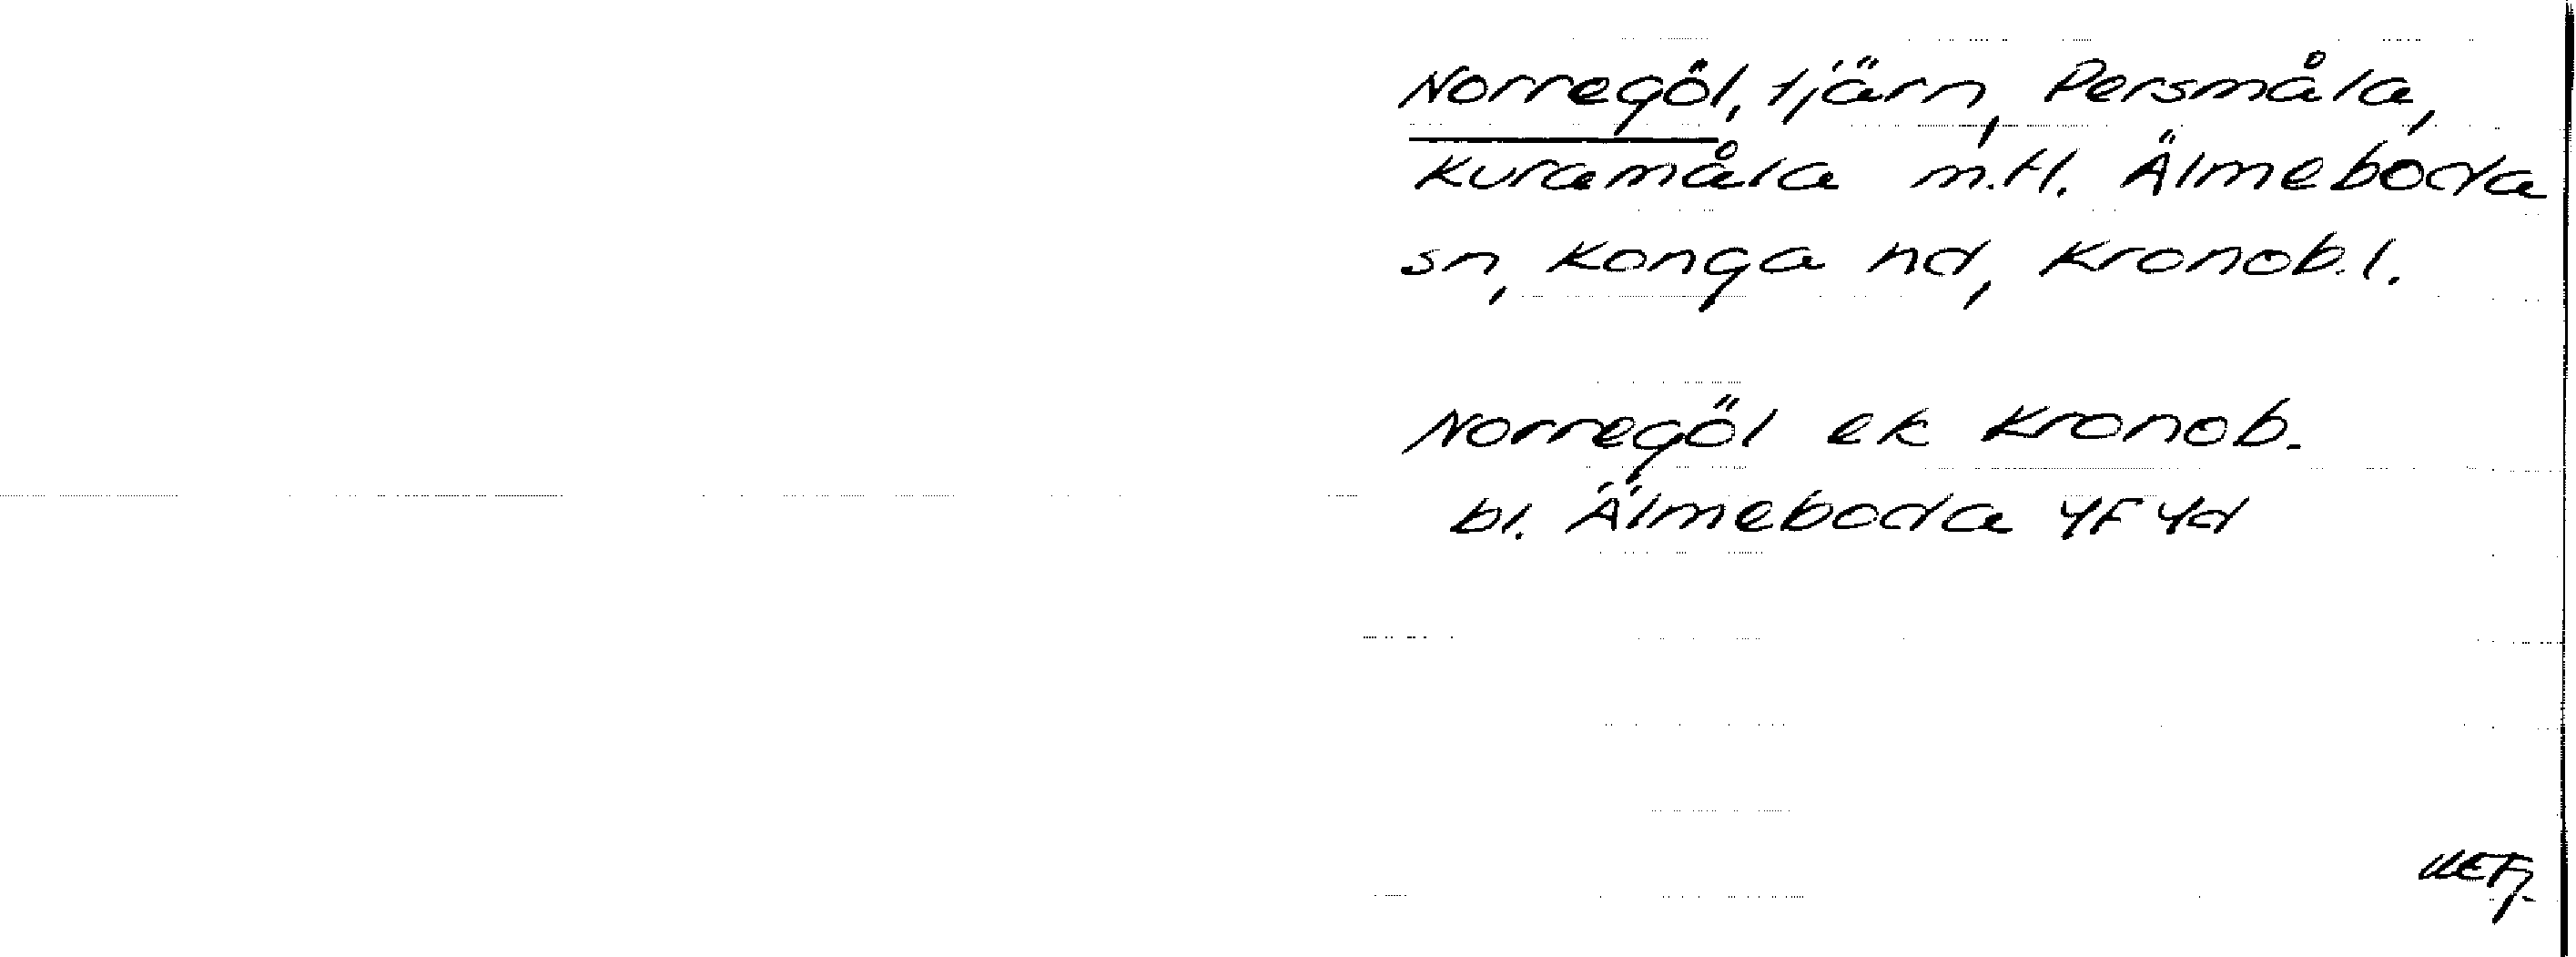 Norregöl, tjärn, Persmåla,
Kuramåla m.fl. Älmeboda
sn, Konga hd, Kronob.l.
Norregöl ek Kronob.
bl. Älmeboda 4F 4d